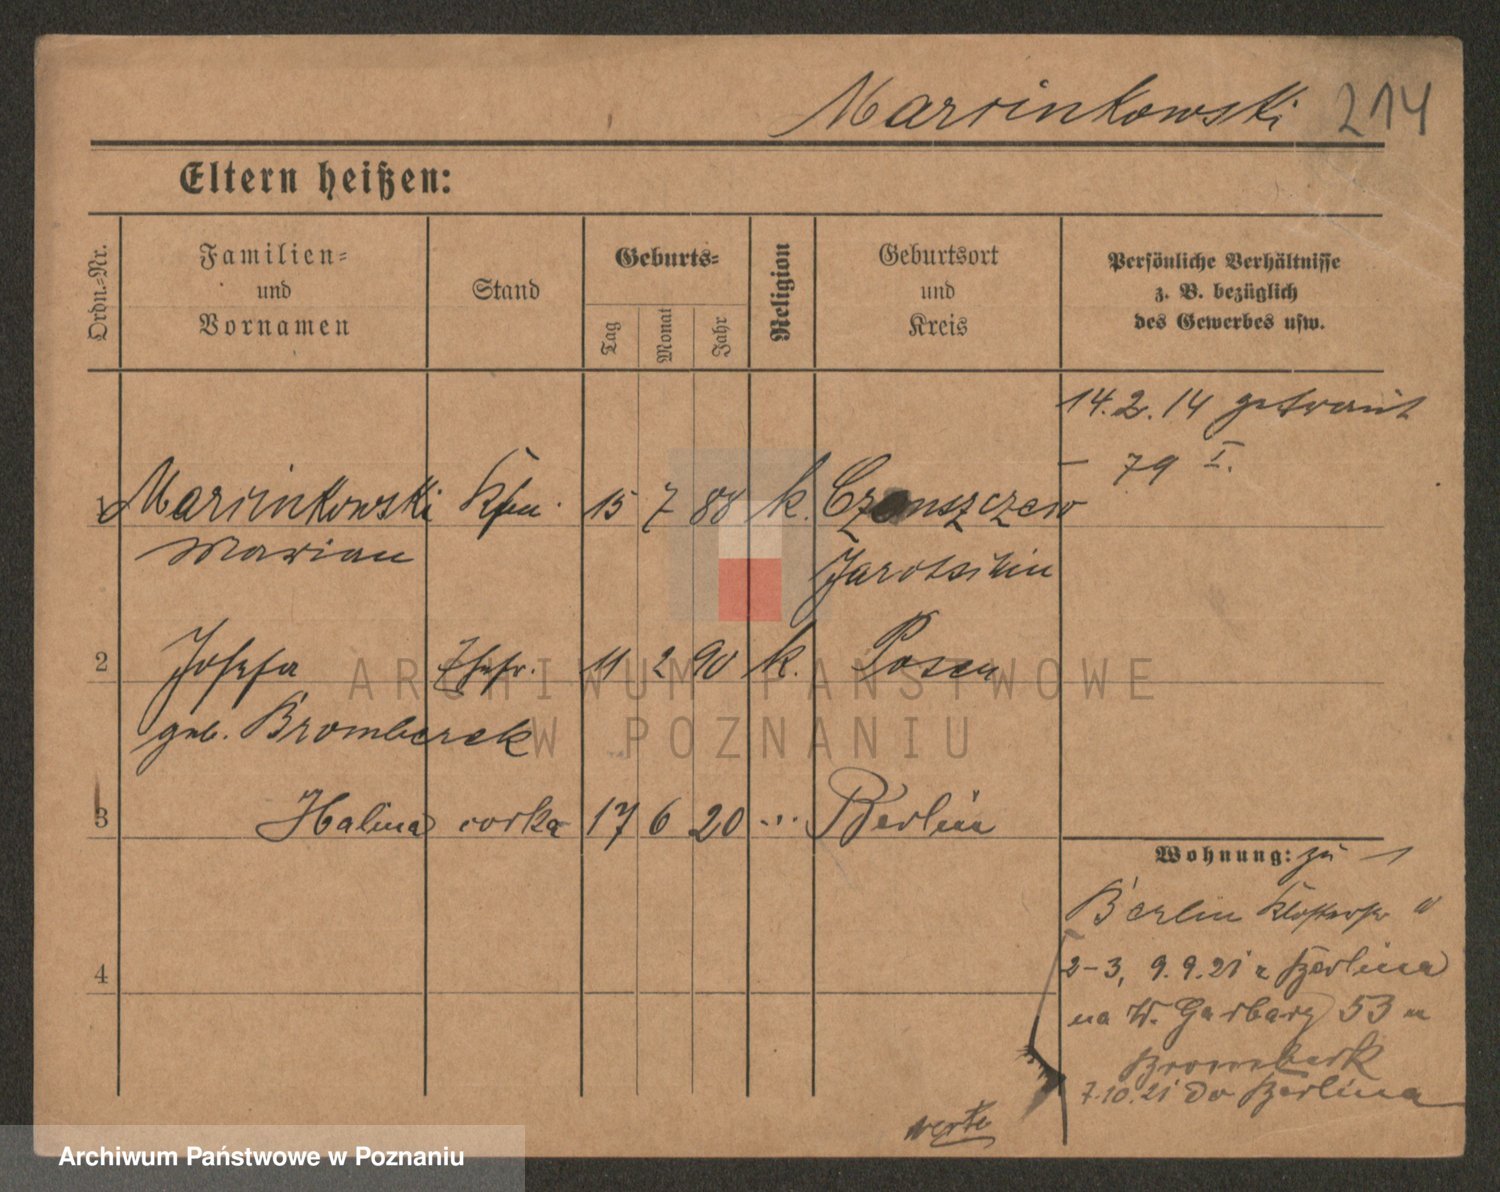 Marcinkowski 214
Eltern heißen:
Ordn.-Nr.
Familien-
und
Vornamen
Stand
Geburts-
Tag
Monat
Jahr
Religion
Geburtsort
und
Kreis
Persönliche Verhältnisse
z. B. bezüglich
des Gewerbes usw.
14.2.14 getraut
– 79 I.
1 Marcinkowski Kfm. 15 7 88 k.
Marian
Jarotschin
2 Josefa Ehefr. 11 2 90 k. Posen
geb. Bromberek
3 Halina corka 17 6 20 " Berlin
Wohnung: zu 1
Berlin Klosterstr
2-3, 9.9.21 z Berlina
na W. Garbary 53 u
Bromberk
7.10.21 do Berlina
4
verte
ARCHIWUM PAŃSTWOWE
W POZNANIU
Archiwum Państwowe w Poznaniu